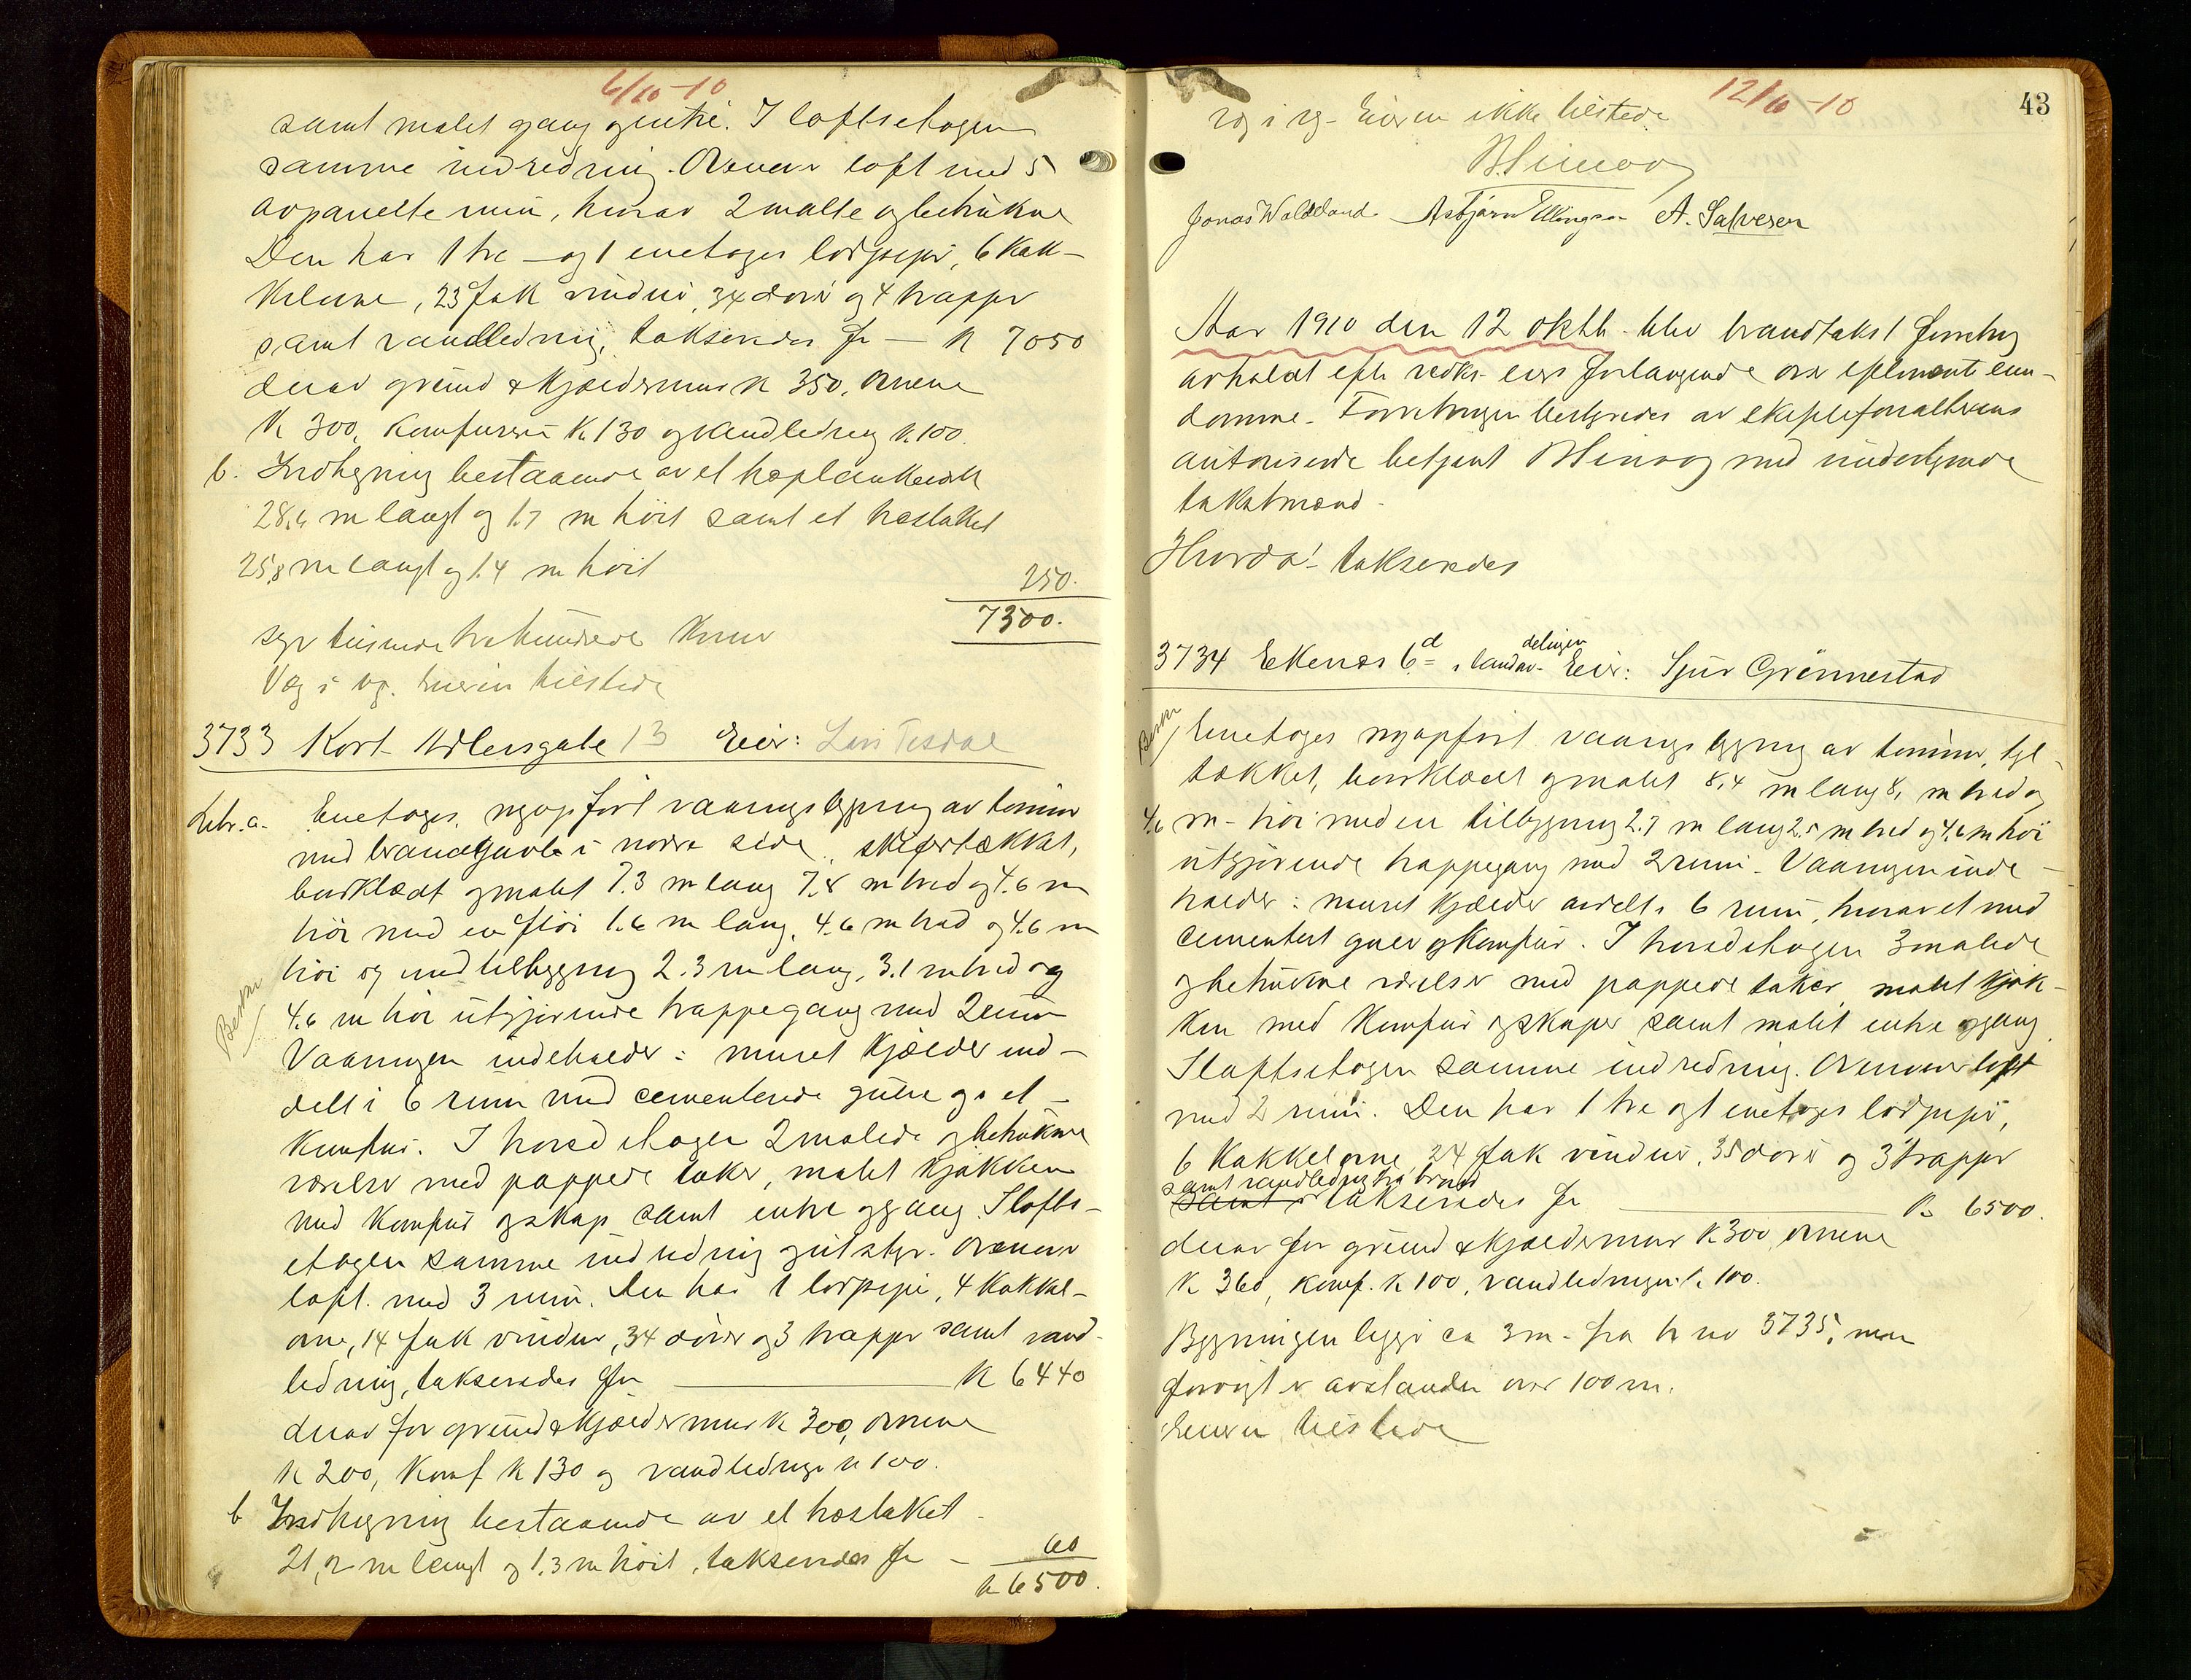 6/10-10
samt malet gang og entré. I loftsetagen
samme indredning. Ovenover loft med 5
avpanelte rum, hvorav 2 malte og betrukne
Den har 1 tre- og 1 enetages lodpipe, 6 kak-
kelovne, 23 fak vinduer, 34 dører og 4 trapper
samt vandledning, takseredes for — K 7050
derav grund & kjældermur K 350, ovnene
K 300, komfurerne K 130 og vandledning K 100.
b. Indhegning bestaaende av et træplankeverk
28,6 m langt og 1.7 m høit samt et træstaket
25,8 m langt og 1.4 m høit
250.
7300.
syv tusinde trehundrede kroner
V og i vg. Eieren tilstede
3733 Kort Adlersgate 13 Eier: Lars Tesdal
Litr. a. Enetages, nyopført vaaningsbygning av tømmer
med brandgavle i nordre side, skifertækket,
bordklædt og malet 7.3 m lang 7,8 m bred og 4.6 m
høi med en fløi 1.6 m lang, 4.6 m bred og 4.6 m
høi og med tilbygning 2.3 m lang, 3.1 m bred og
4.6 m høi utgjørende trappegang med 2 rum
Beskr
Vaaningen indeholder: muret kjælder ind-
delt i 6 rum med cementerede gulve og et
komfur. I hovedetagen 2 malede og betrukne
værelser med pappede taker, malet kjøkken
med komfur og skap samt entre og gang. I lofts-
etagen samme indredning og utstyr. Ovenover
loft med 3 rum. Den har 1 lodpipe, 4 kakkel-
ovne, 14 fak vinduer, 34 dører og 3 trapper samt vand-
ledning, takseredes for — K 6440
derav for grund & kjældermur K 300, ovnene
K 200, Komf K 130 og vandledninge K 100.
b Indhegning bestaaende av et træstaket
21,2 m langt og 1.3 m høit, takseredes for — 60
K 6500.
12/10-10
43
V og i vg- Eieren ikke tilstede
Jonas Waldeland Asbjørn Ellingsen A. Salvesen
Aar 1910 den 12 oktb. blev brandtakst forretning
avholdt efter vedk. eiers forlangende over eftermævnte eien-
domme. Forretningen bestyredes av skifteforvalterens
autoriserede betjent med undertegnede
takstmænd.
Hvorda! takseredes
3734 Ekenæs 6d i landavdelingen Eier: Sjur Grønnestad
Beskr
Enetages nyopført vaaningsbygning av tømmer, tegl-
tækket, bordklædt og malet 8,4 m lang 8, m bred og
4,6 m- høi med en tilbygning 2.7 m lang 2.5 m bred og 4,6 m høi
utgjørende trappegang med 2 rum. Vaaningen inde-
holder: muret kjælder avdelt i 6 rum, hvorav et med
cementert gulv og komfur. I hovedetagen 3 malede
og betrukne værelser med pappede taker, malet kjøk-
ken med komfur og skaper samt malet entre og gang.
I loftsetagen samme indredning. Ovenover loft
med 2 rum. Den har 1 tre og 1 enetages lodpipe,
6 kakkelovne, 24 fak vinduer, 35 dører og 3 trapper
samt vandledning fra brønd
samt takseredes for — K 6500.
derav for grund & kjældermur K 300, ovnene
K 360, komf. K 100, vandledningen K 100.
Bygningen ligger ca 3 m- fra br no 3735, men
forøvrigt er avstanden over 100 m.
Eieren tilstede